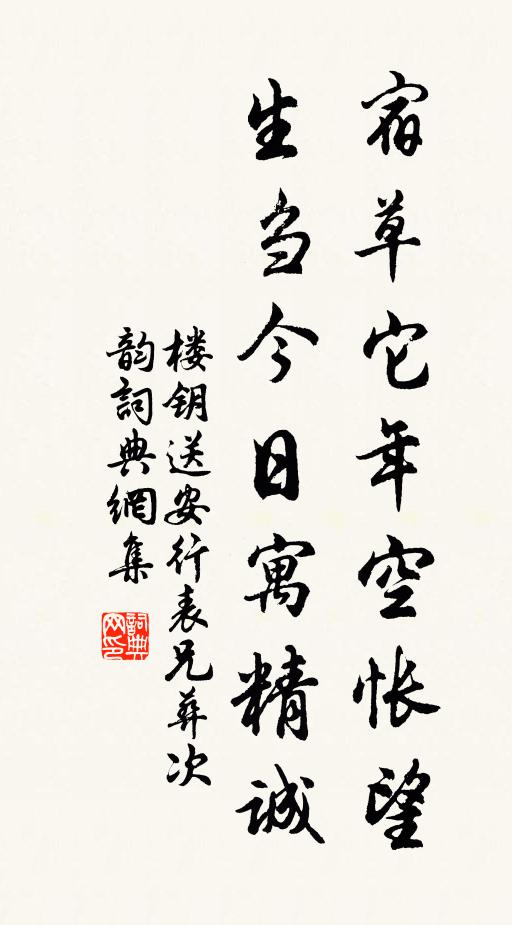 宿草它年空怅望
生刍今日寓精诚
楼钥送安行表兄葬次
韵詞典網集
詞典
网印